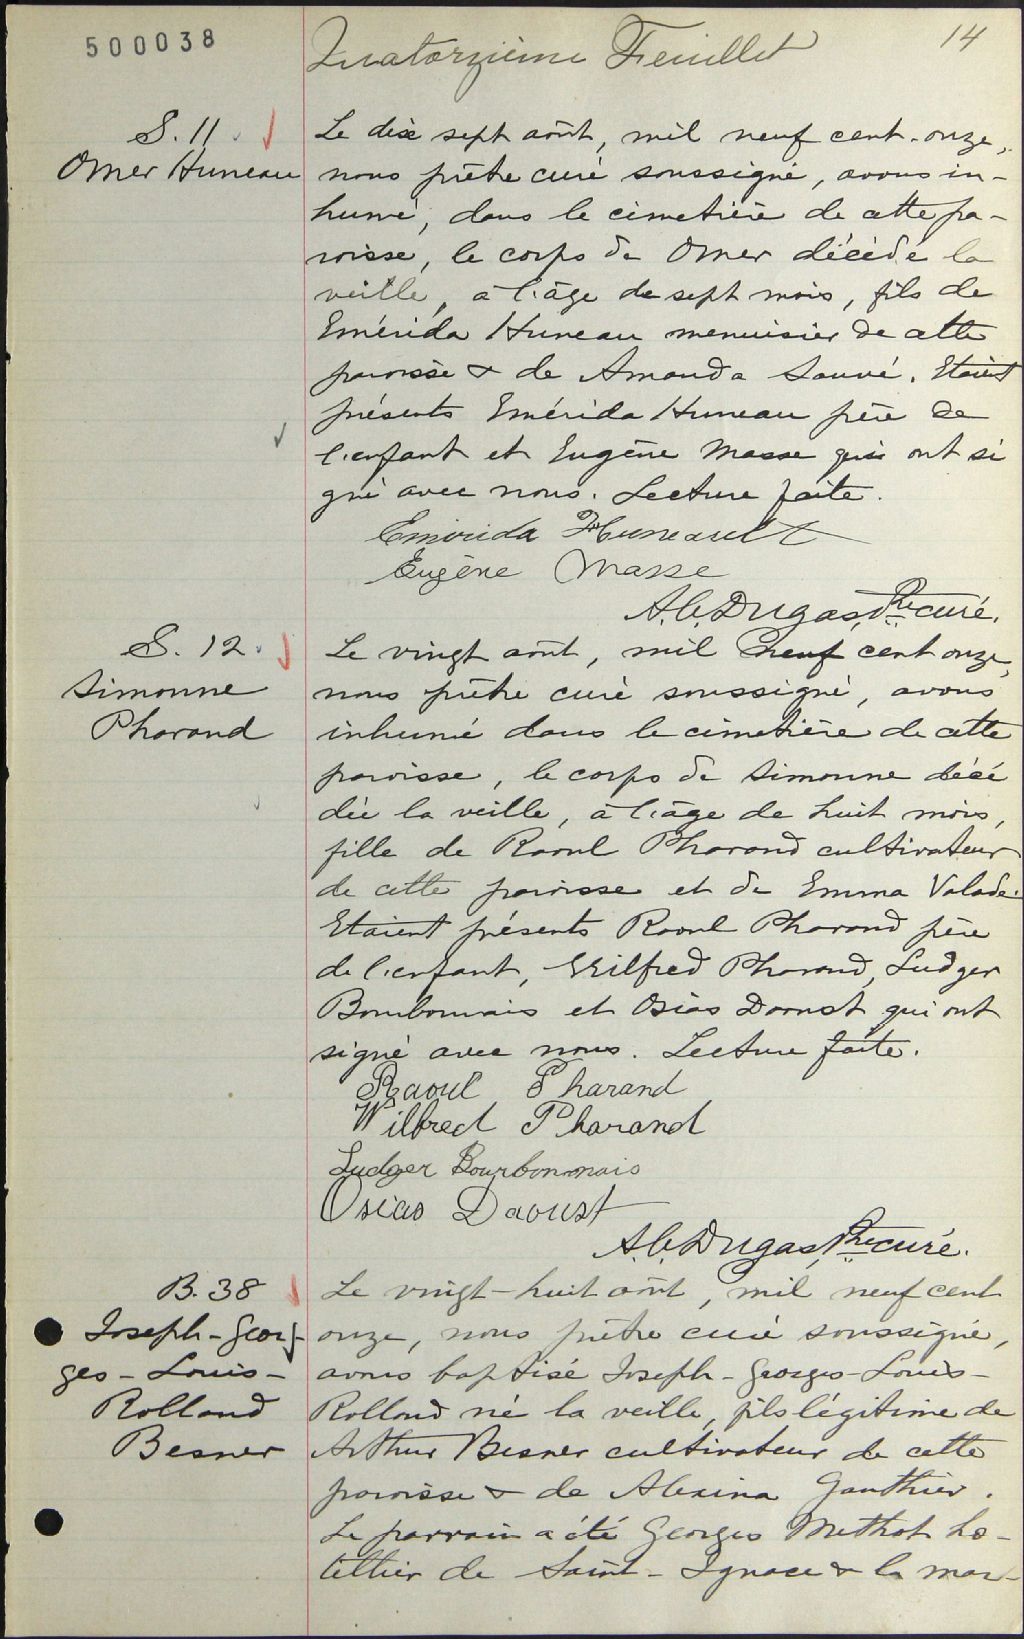 500038
Quatorzième Feuillet
14
S. 11.
Omer Huneau
Le dix sept août, mil neuf cent onze,
nous prêtre curé soussigné, avons in-
humé, dans le cimetière de cette pa-
roisse, le corps de Omer décédé la
veille, à l'âge de sept mois, fils de
Emérida Huneau menuisier de cette
paroisse & de Amanda Sauvé. Etaient
présents Emérida Huneau père de
l'enfant et Eugène Masse qui ont si
gné avec nous. Lecture faite.
Emérida Huneault
Eugène Masse
A.C. Dugas, Ptre curé.
S. 12.
Simonne
Pharand
Le vingt août, mil neuf cent onze,
nous prêtre curé soussigné, avons
inhumé dans le cimetière de cette
paroisse, le corps de Simonne décé
dée la veille, à l'âge de huit mois,
fille de Raoul Pharand cultivateur
de cette paroisse et de Emma Valade.
Etaient présents Raoul Pharand père
de l'enfant, Wilfred Pharand, Ludger
Bourbonnais et Osias Daoust qui ont
signé avec nous. Lecture faite.
Raoul Pharand
Wilfred Pharand
Ludger Bourbonnais
Osias Daoust
A.C. Dugas, Ptre curé.
B. 38
Joseph-Geor-
ges-Louis-
Rolland
Besner
Le vingt-huit août, mil neuf cent
onze, nous prêtre curé soussigné,
avons baptisé Joseph-Georges-Louis-
Rolland né la veille, fils légitime de
Arthur Besner cultivateur de cette
paroisse & de Alexina Gauthier.
Le parrain a été Georges Methot hô-
tellier de Saint-Ignace & la mar-